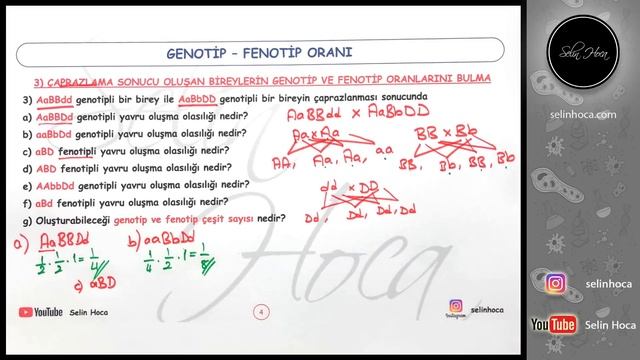 GENOTİP – FENOTİP ORANI
3) ÇAPRAZLAMA SONUCU OLUŞAN BİREYLERİN GENOTİP VE FENOTİP ORANLARINI BULMA
3) AaBBdd genotipli bir birey ile AaBbDD genotipli bir bireyin çaprazlanması sonucunda
a) AaBBDd genotipli yavru oluşma olasılığı nedir?
b) aaBbDd genotipli yavru oluşma olasılığı nedir?
c) aBD fenotipli yavru oluşma olasılığı nedir?
d) ABD fenotipli yavru oluşma olasılığı nedir?
e) AAbbDd genotipli yavru oluşma olasılığı nedir?
f) aBd fenotipli yavru oluşma olasılığı nedir?
g) Oluşturabileceği genotip ve fenotip çeşit sayısı nedir?
AaBBdd x AaBbDD
Aa x Aa
BB x Bb
AA, Aa, Aa, aa
BB, Bb, BB, Bb
dd x DD
Dd, Dd, Dd, Dd
a) AaBBDd
1/2 . 1/2 . 1 = 1/4
b) aaBbDd
1/4 . 1/2 . 1 = 1/8
c) aBD
Selin Hoca
YouTube Selin Hoca
4
Instagram selinhoca
Selin Hoca
selinhoca.com
selinhoca
YouTube Selin Hoca